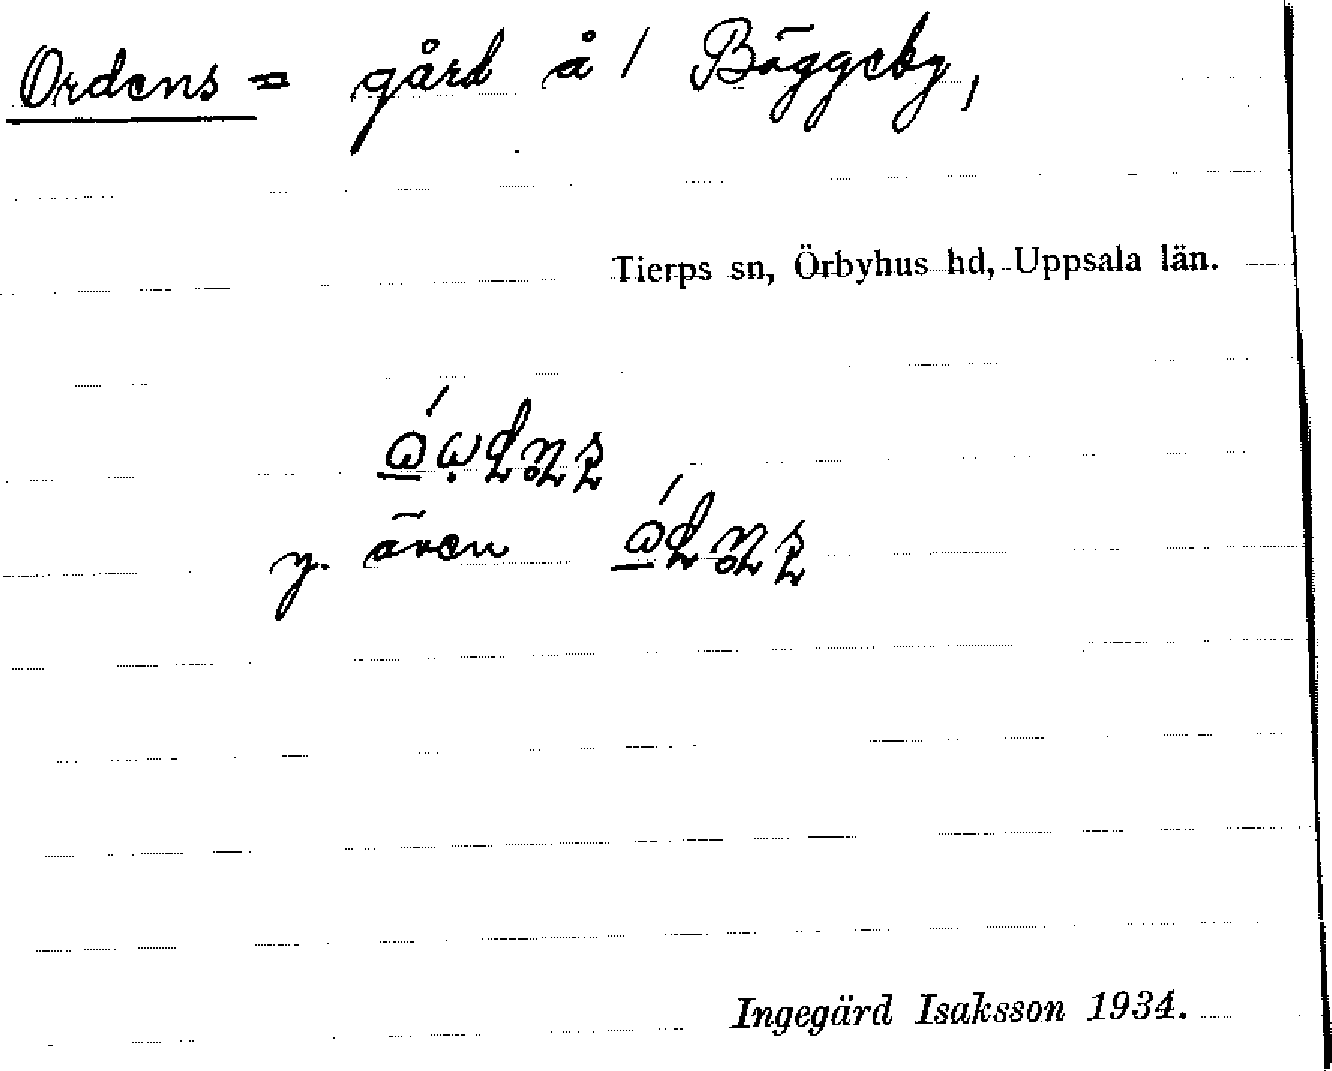 Ordens = gård å / Bäggeby,
Tierps sn, Örbyhus hd, Uppsala län.
y. även
Ingegärd Isaksson 1934.